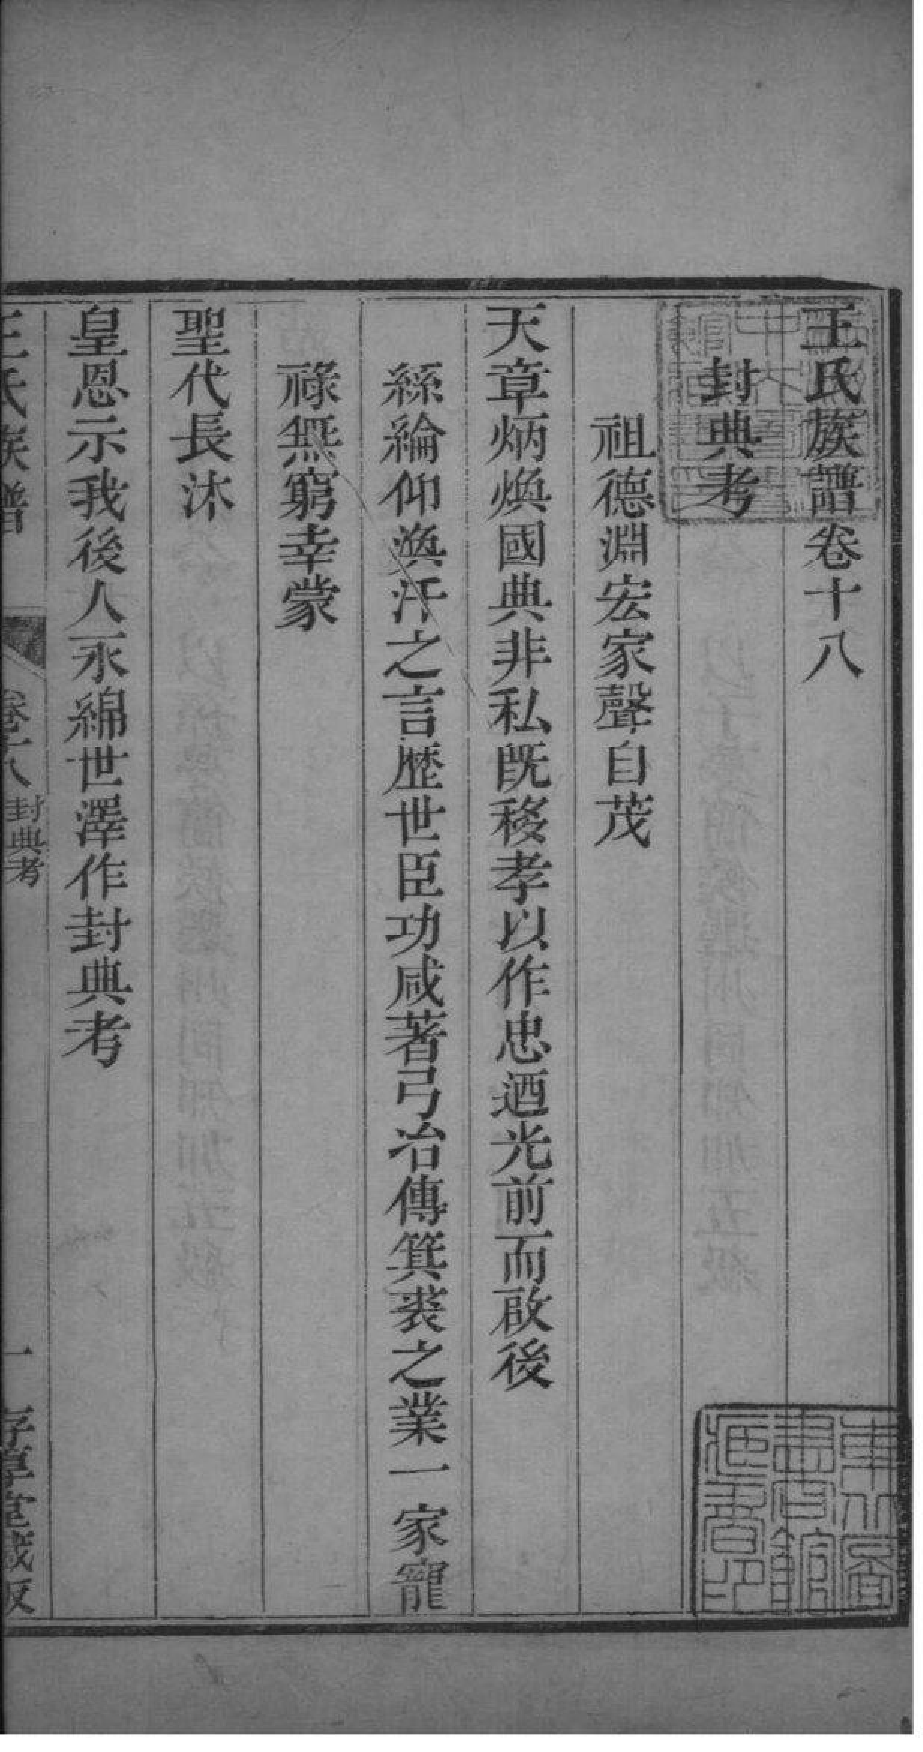 王氏族譜卷十八
封典考
祖德淵宏家聲自茂
天章炳煥國典非私既移孝以作忠迺光前而啟後
絲綸仰渙汗之言歷世臣功咸著弓冶傳箕裘之業一家寵
祿無窮幸蒙
聖代長沐
皇恩示我後人永綿世澤作封典考
王氏族譜 卷十八 封典考 一 存厚堂藏板